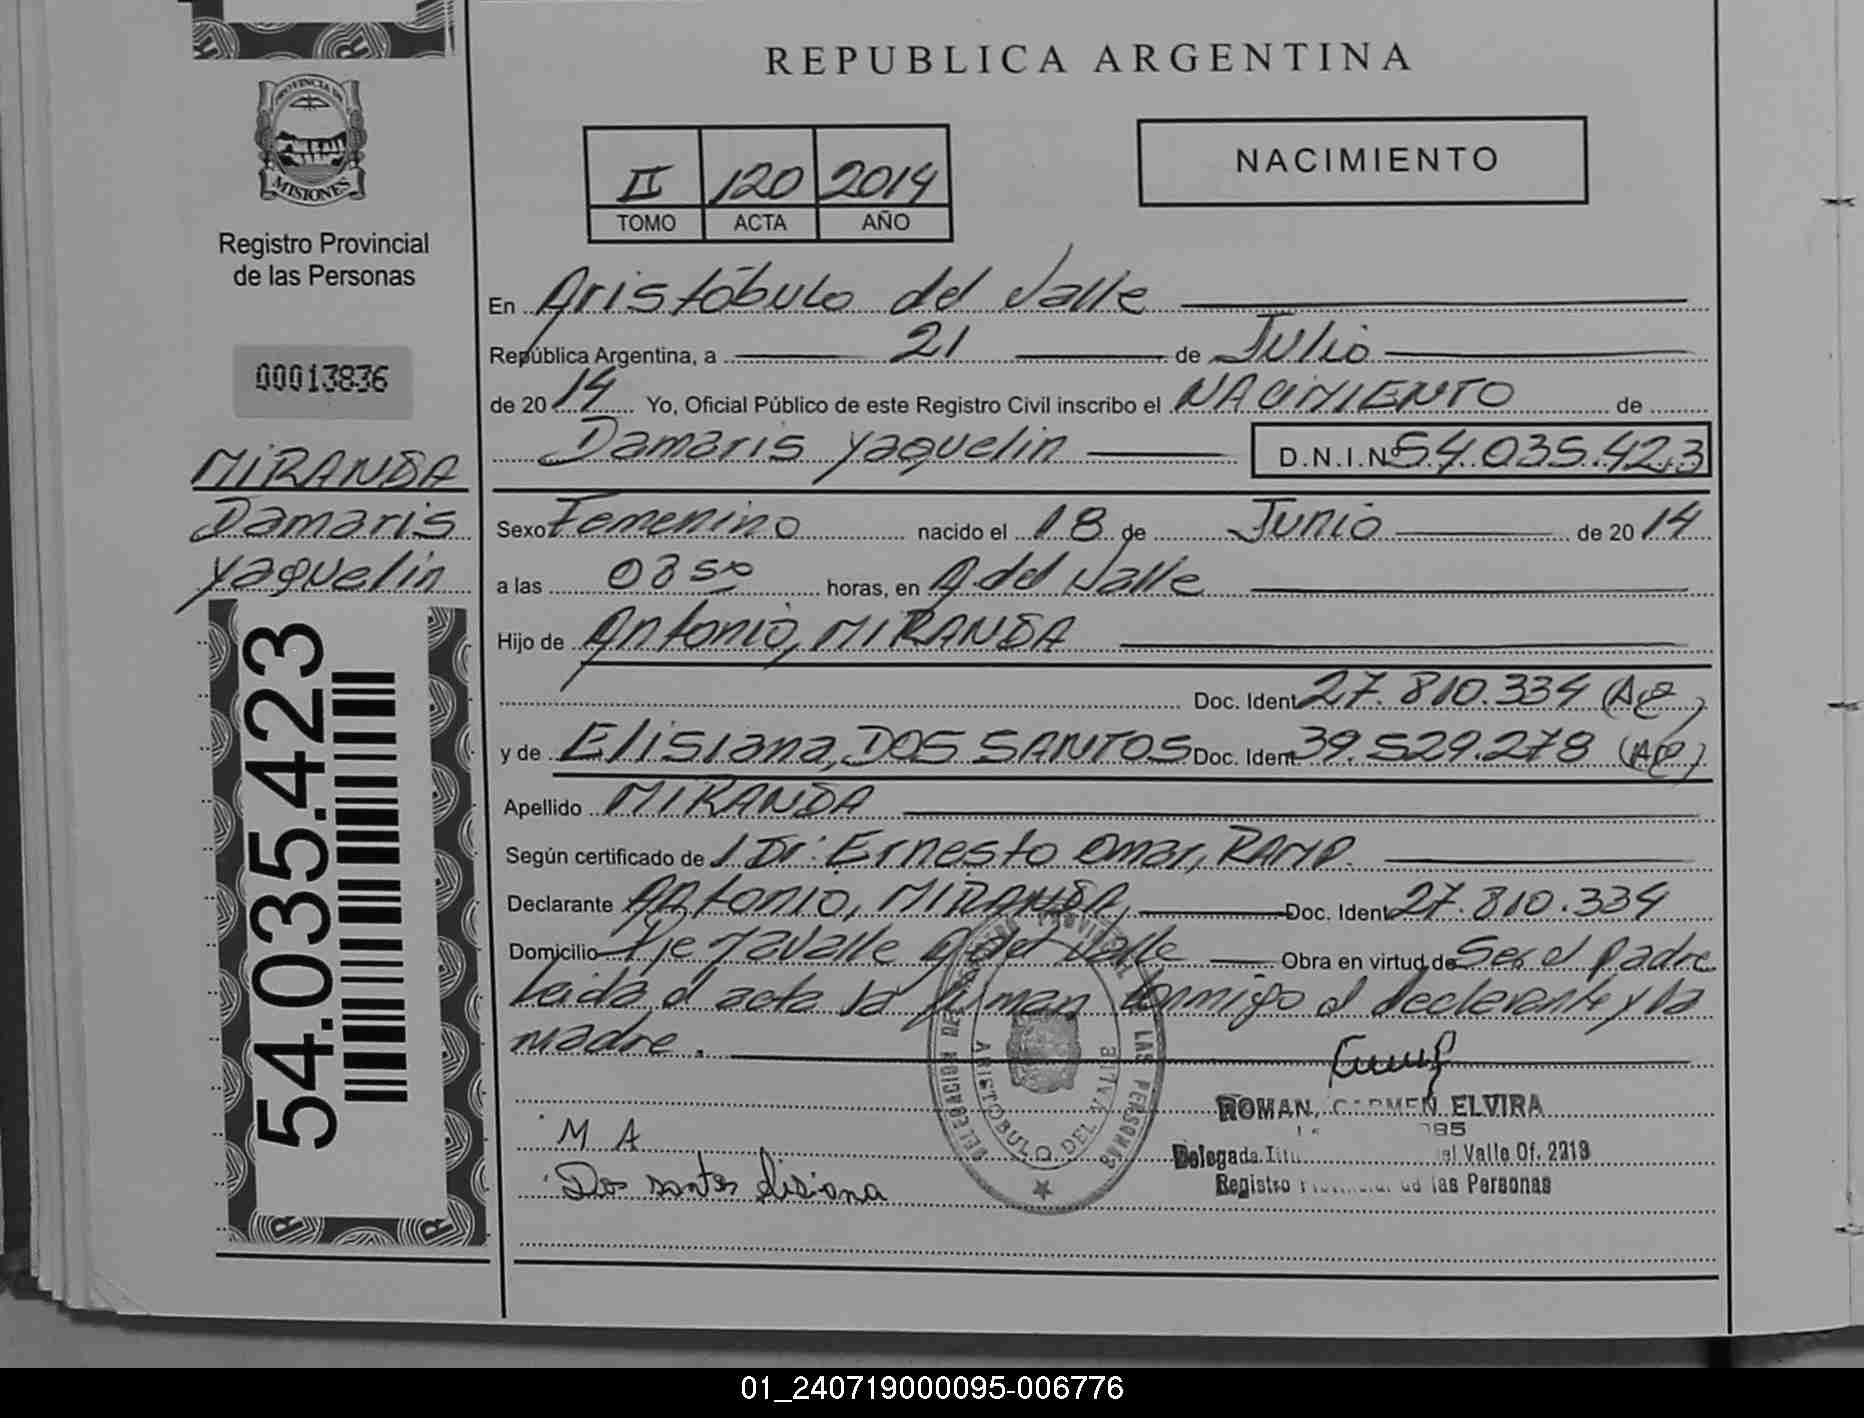 REPUBLICA ARGENTINA
PROVINCIA DE
MISIONES
Registro Provincial
de las Personas
00013836
MIRANDA
Damaris
Yaquelin
54.035.423
II 120 2014
TOMO ACTA AÑO
NACIMIENTO
En Aristóbulo del Valle
República Argentina, a 21 de Julio
de 2014 Yo, Oficial Público de este Registro Civil inscribo el NACIMIENTO de
Damaris Yaquelin D.N.I.Nº 54.035.423
Sexo Femenino nacido el 18 de Junio de 2014
a las 03 50 horas, en A. del Valle
Hijo de Antonio, MIRANDA
Doc. Ident 27.810.334 (Ap)
y de Elisiana, DOS SANTOS Doc. Ident 39.529.278 (Ap)
Apellido MIRANDA
Según certificado de Dr. Ernesto Omar, RAMP.
Declarante Antonio, MIRANDA, Doc. Ident 27.810.334
Domicilio A del Valle Obra en virtud de Ser el padre
Leida el acta la firman conmigo el declarante y la
madre.
M A
Dos santos Elisiana
DELEGACION DEL REGISTRO PROVINCIAL DE LAS PERSONAS
ARISTOBULO DEL VALLE
ROMAN, CARMEN ELVIRA
Delegada Titu el Valle Of. 2213
Registro de las Personas
01_240719000095-006776